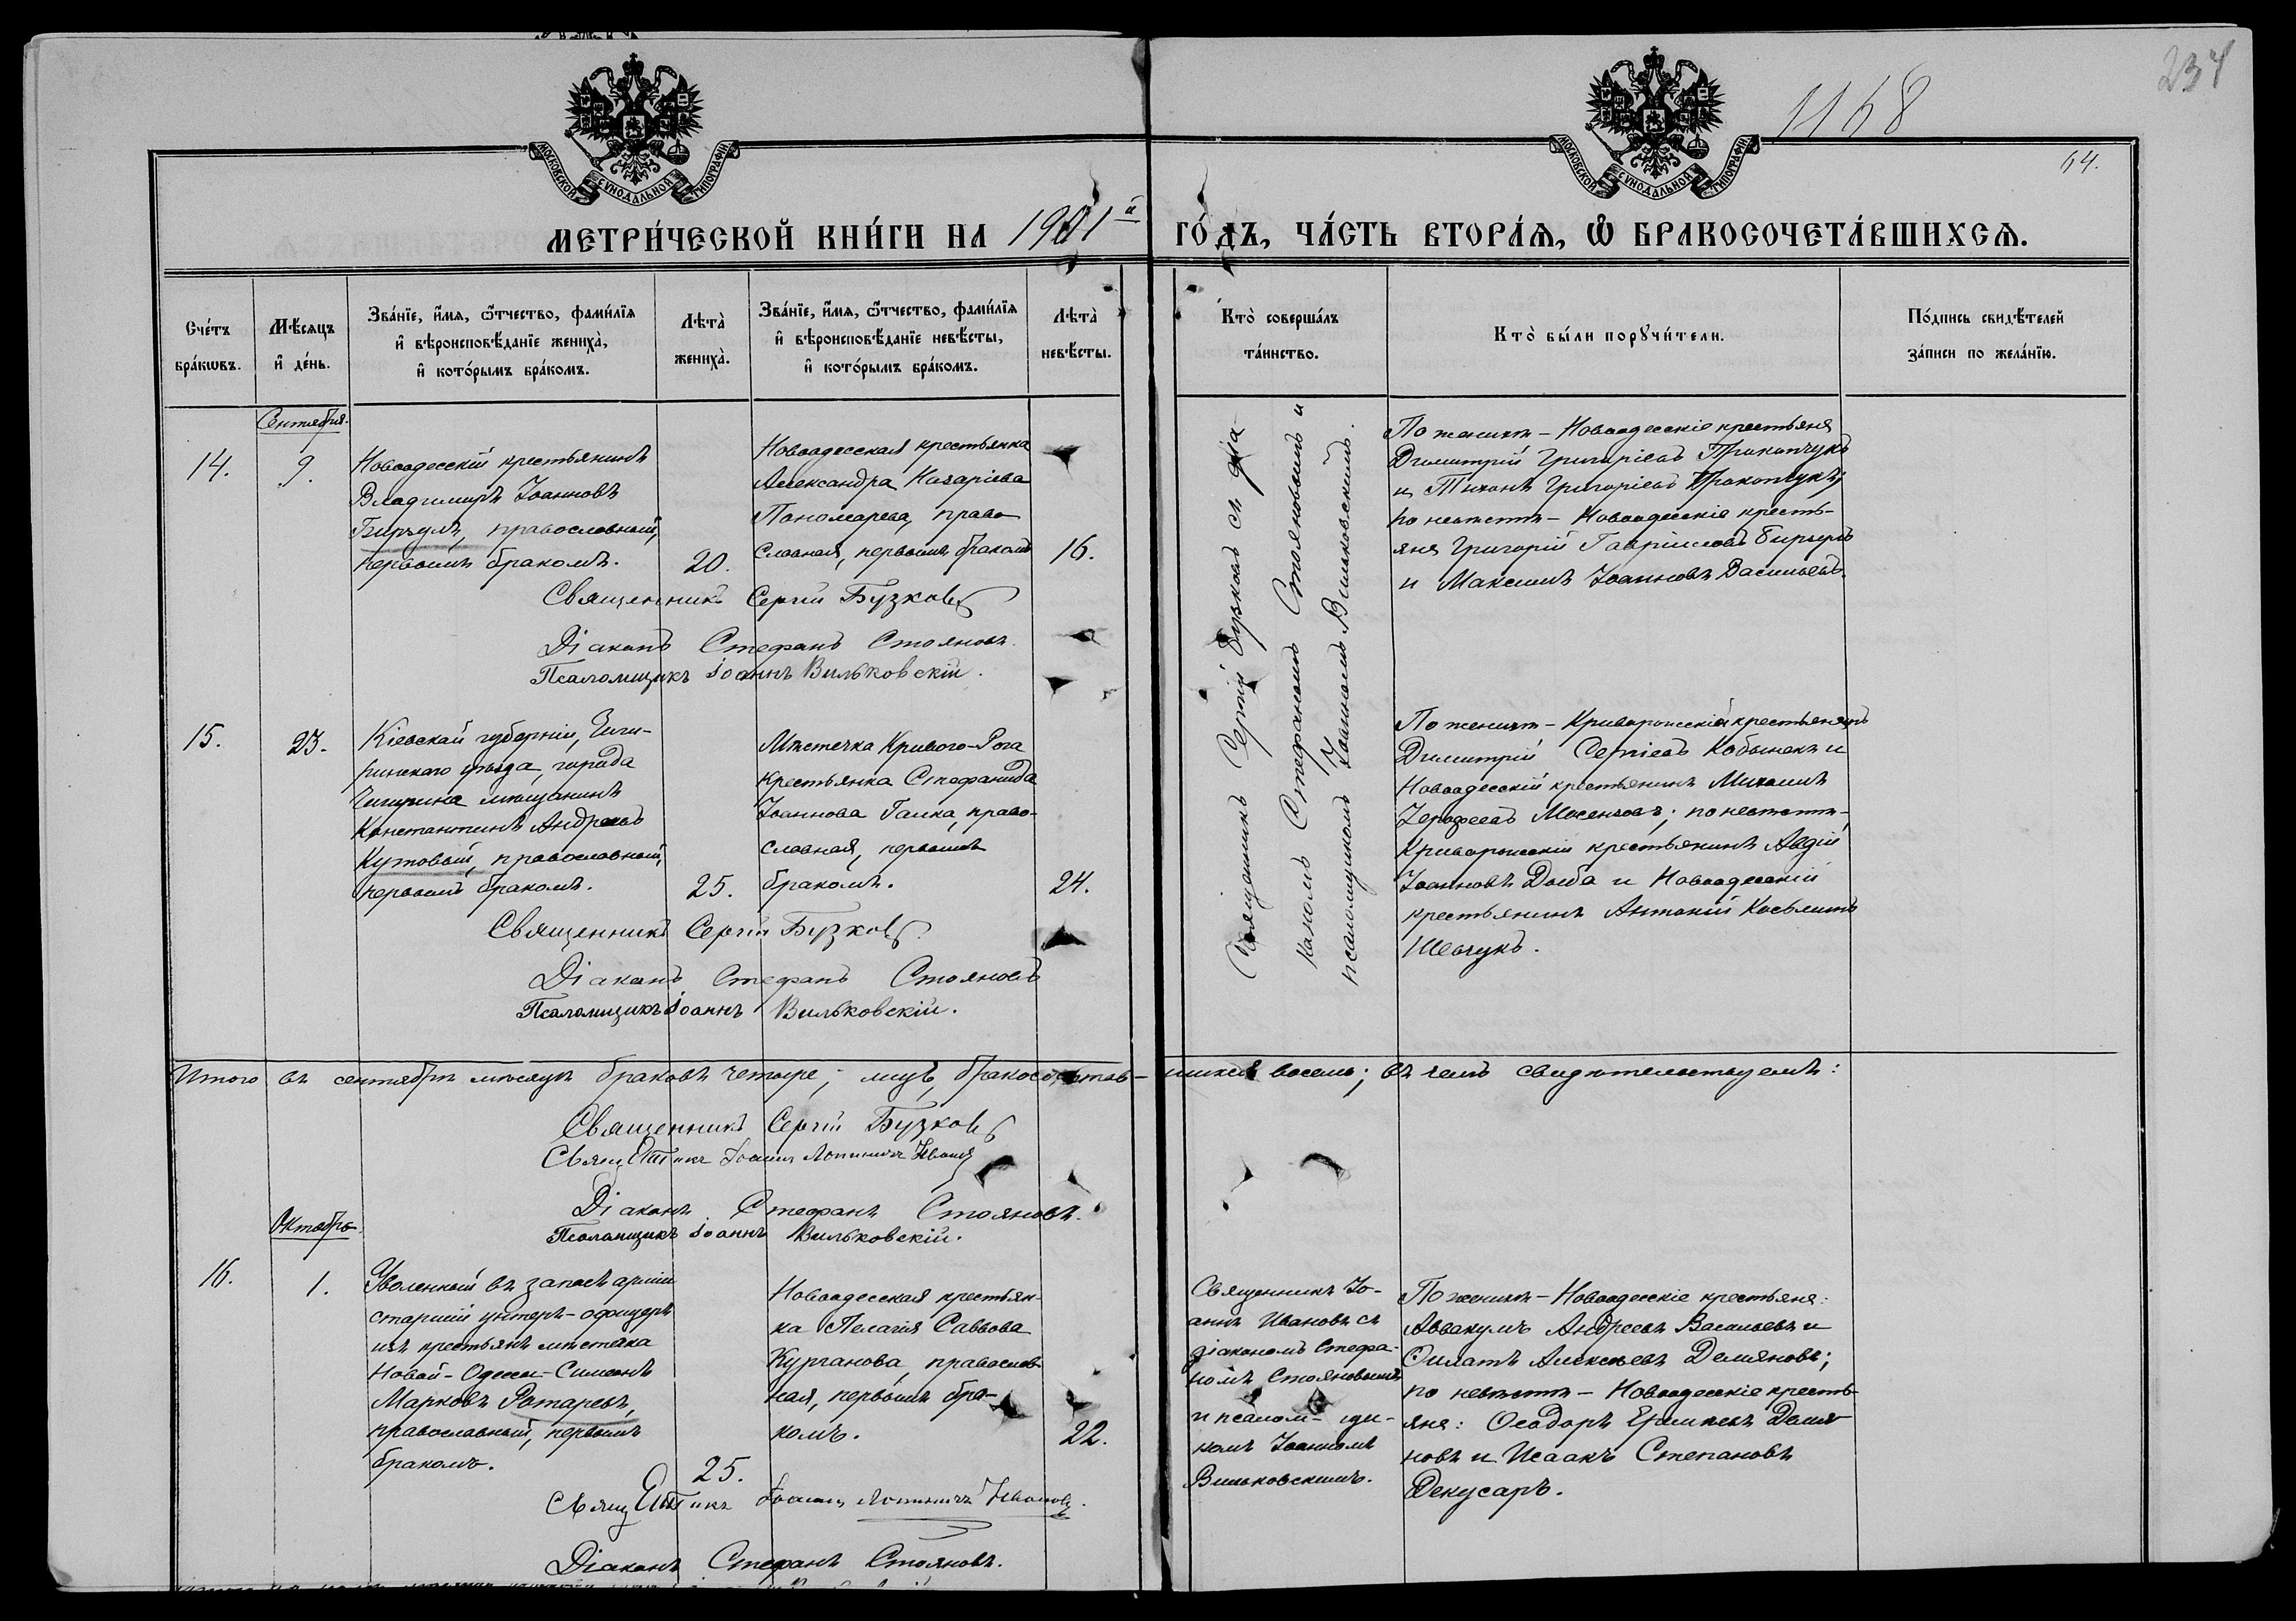 234
1168
64.
МОСКОВСКОЙ СѴНОДАЛЬНОЙ ТИПОГРАФІИ
МОСКОВСКОЙ СѴНОДАЛЬНОЙ ТИПОГРАФІИ
МЕТРИ́ЧЕСКОЙ КНИ́ГИ НА 1901й ГО́ДЪ, ЧА́СТЬ ВТОРА́Ѧ, Ѡ҆ БРАКОСОЧЕТА́ВШИХСѦ.
Сче́тъ бра́кѡвъ.
Мѣ́сяцъ и҆ де́нь.
Зва́нїе, и҆́мѧ, ѻ҆́тчество, фами́лїѧ и҆ вѣроисповѣ́данїе жениха̀, и҆ кото́рымъ бра́комъ.
Лѣта̀ жениха̀.
Зва́нїе, и҆́мѧ, ѻ҆́тчество, фами́лїѧ и҆ вѣроисповѣ́данїе невѣ́сты, и҆ кото́рымъ бра́комъ.
Лѣта̀ невѣ́сты.
Кто̀ соверша́лъ та́инство.
Кто̀ бы́ли порꙋчи́тели.
По́дпись свидѣ́телей за́писи по жела́нїю.
Сентября.
14.
9.
Новоодесскій крестьянинъ
Владимиръ Іоанновъ
Бирзулъ, православный,
первымъ бракомъ.
20.
Новоодесская крестьянка
Александра Назаріева
Пономарева, право
славная, первымъ бракомъ
16.
Священникъ Сергій Бузковъ съ діа
кономъ Стефаномъ Стояновымъ и
псаломщикомъ Іоанномъ Вильковскимъ.
По женихѣ – Новоодесскіе крестьяне
Димитрій Григоріевъ Прокопчукъ
и Тихонъ Григоріевъ Прокопчукъ;
по невѣстѣ – Новоодесскіе кресть-
яне Григорій Гавріиловъ Бирзулъ
и Максимъ Іоанновъ Васильевъ.
Священникъ Сергій Бузковъ
Діаконъ Стефанъ Стояновъ.
Псаломщикъ Іоаннъ Вильковскій.
15.
23.
Кіевской губерніи, Чиги-
ринскаго уѣзда, города
Чигирина мѣщанинъ
Константинъ Андреевъ
Кутовый, православный,
первымъ бракомъ.
25.
Мѣстечка Кривого-Рога
крестьянка Стефанида
Іоаннова Галка, право-
славная, первымъ
бракомъ.
24.
По женихѣ – Криворожскій крестьянинъ
Димитрій Сергіевъ Кобынекъ и
Новоодесскій крестьянинъ Михаилъ
Іерофеевъ Мосенковъ; по невѣстѣ –
Криворожскій крестьянинъ Авдій
Іоанновъ Дыба и Новоодесскій
крестьянинъ Антоній Косьминъ
Шевчукъ.
Священникъ Сергій Бузковъ.
Діаконъ Стефанъ Стояновъ
Псаломщикъ Іоаннъ Вильковскій.
Итого въ сентябрѣ мѣсяцѣ браковъ четыре; лицъ, бракосочетав-шихся восемь; въ чемъ свидѣтельствуемъ:
Священникъ Сергій Бузковъ
Іоаннъ
Діаконъ Стефанъ Стояновъ.
Псаломщикъ Іоаннъ Вильковскій.
Октябрь.
16.
1.
Уволенный въ запасъ арміи
старшій унтеръ-офицеръ
изъ крестьянъ мѣстечка
Новой-Одессы – Симеонъ
Марковъ Ротаревъ,
православный, первымъ
бракомъ.
25.
Новоодесская крестьян-
ка Пелагія Саввова
Курганова, православ-
ная, первымъ бра-
комъ.
22.
Священникъ Іо-
аннъ Ивановъ съ
діакономъ Стефа-
номъ Стояновымъ
и псалом-щи-
комъ Іоанномъ
Вильковскимъ.
По женихѣ – Новоодесскіе крестьяне:
Аввакумъ Андреевъ Васильевъ и
Филатъ Алексѣевъ Демяновъ;
по невѣстѣ – Новоодесскіе кресть-
яне: Ѳеодоръ Демя-
новъ и Исаакъ Степановъ
Декусаръ.
Іоаннъ Ивановъ.
Діаконъ Стефанъ Стояновъ.